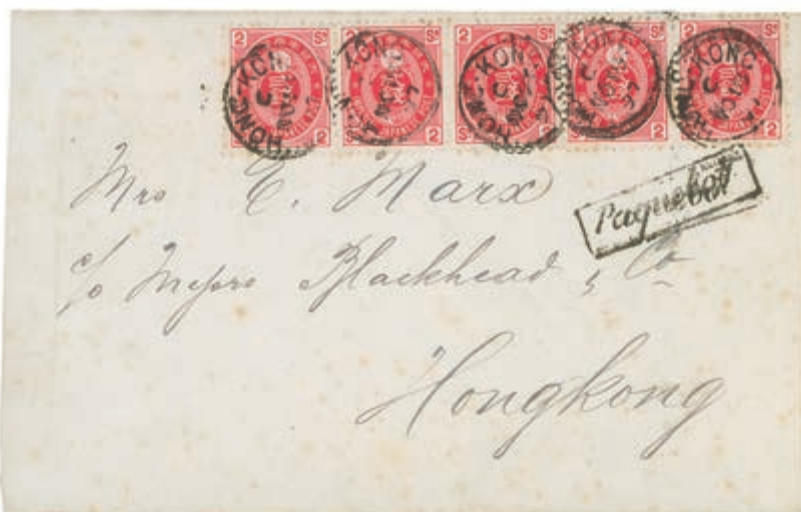 2 Sn 2 Sn 2 Sn 2 Sn 2 Sn
HONG-KONG HONG-KONG HONG-KONG HONG-KONG
Paquebot
Mrs E. Marx
c/o Messrs Blackhead & Co
Hongkong